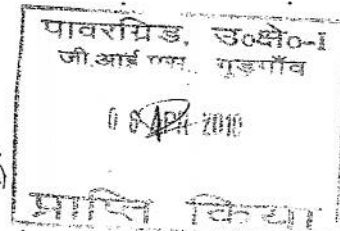 पावरग्रिड, उ०क्षे०-I
जी.आई एस, गुड़गाँव
APR 2010
प्राप्ति किया